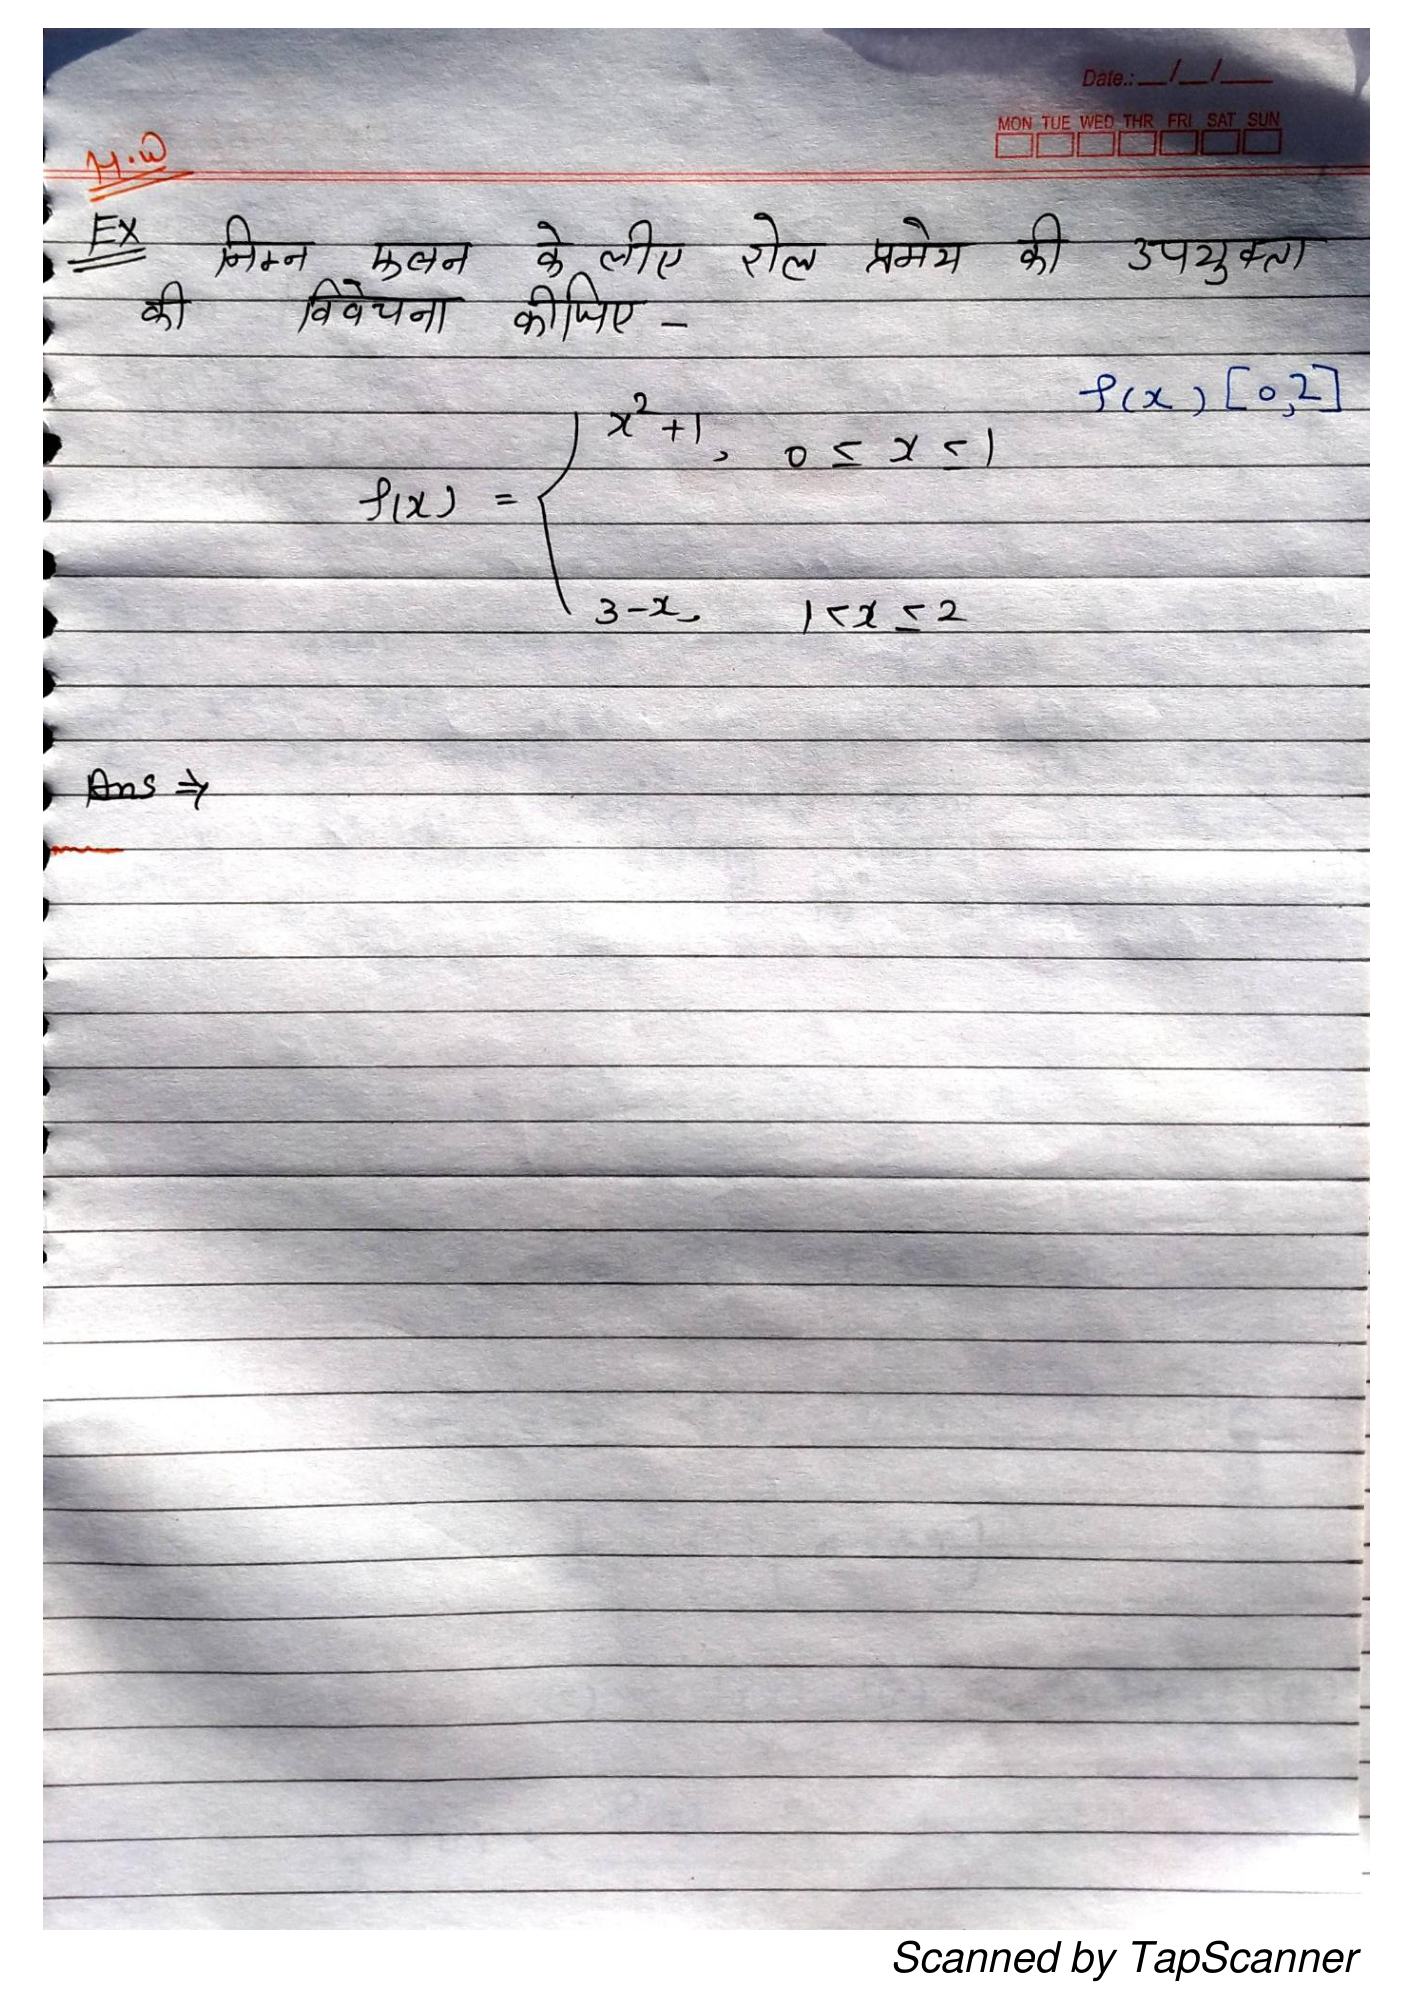 Date.:__/__/___
MON TUE WED THR FRI SAT SUN
H.W
Ex निम्न फलन के लीए रोल प्रमेय की उपयुक्ता
की विवेचना कीजिए -
f(x) [0,2]
x²+1, 0 ≤ x ≤ 1
f(x) =
3-x, 1 < x ≤ 2
Ans ⇒
Scanned by TapScanner